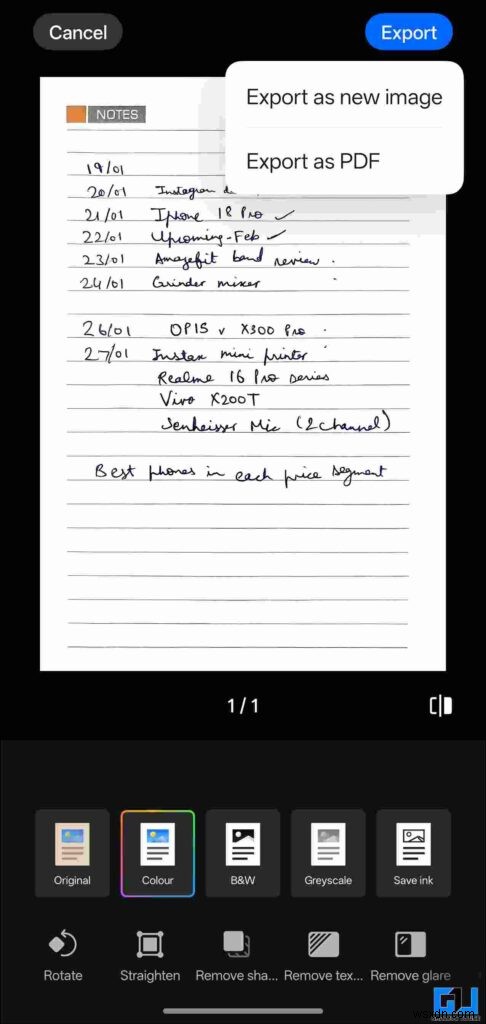 Cancel
Export
Export as new image
Export as PDF
NOTES
19/01
20/01 Instagram
21/01 Iphone 18 Pro ✓
22/01 Upcoming-Feb ✓
23/01 Amazefit band review .
24/01 Grinder mixer
26/01 OP15 v X300 Pro .
27/01 Instax mini printer
Realme 16 Pro series
Vivo X200T
Senheisser Mic (2 Channel)
Best phones in each price segment
1/1
Original
Colour
B&W
Greyscale
Save ink
Rotate
Straighten
Remove sha...
Remove tex...
Remove glare
wsxdn.com